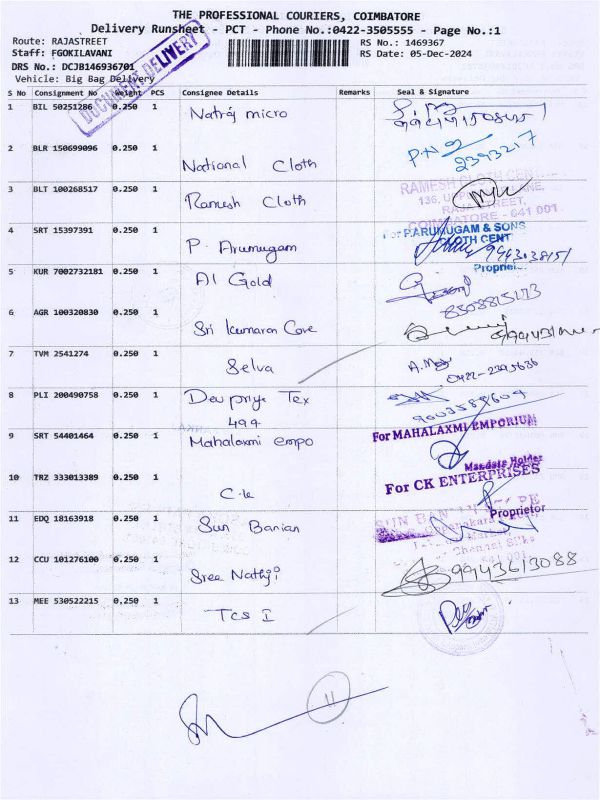 THE PROFESSIONAL COURIERS, COIMBATORE
Delivery Runsheet - PCT - Phone No.:0422-3505555 - Page No.:1
Route: RAJASTREET
RS No.: 1469367
Staff: FGOKILAVANI
RS Date: 05-Dec-2024
DRS No.: DCJB146936701
Vehicle: Big Bag Delivery
DOCUMENT DELIVERY
S No Consignment No Weight PCS Consignee Details Remarks Seal & Signature
1 BIL 50251286 0.250 1 Natraj micro
2 BLR 150699096 0.250 1 National Cloth P.N 2393217
3 BLT 100268517 0.250 1 Ramesh Cloth
RAMESH CLOTH CENT
RAJA STREET,
COIMBATORE - 641 001
4 SRT 15397391 0.250 1 P. Arumugam
For P.ARUMUGAM & SONS
CLOTH CENT
Propriet
5 KUR 7002732181 0.250 1 A1 Gold
6 AGR 100320830 0.250 1 Sri kumaran Cove
7 TVM 2541274 0.250 1 Selva
8 PLI 200490758 0.250 1 Devpriye Tex 9003584604
499
9 SRT 54401464 0.250 1 Mahalaxmi empo
For MAHALAXMI EMPORIUM
Mandate Holder
10 TRZ 333013389 0.250 1 C.k
For CK ENTERPRISES
Proprietor
11 EDQ 18163918 0.250 1 Sun Banian
12 CCU 101276100 0.250 1 Sree Nathji 9943613088
13 MEE 530522215 0.250 1 TCS I
11